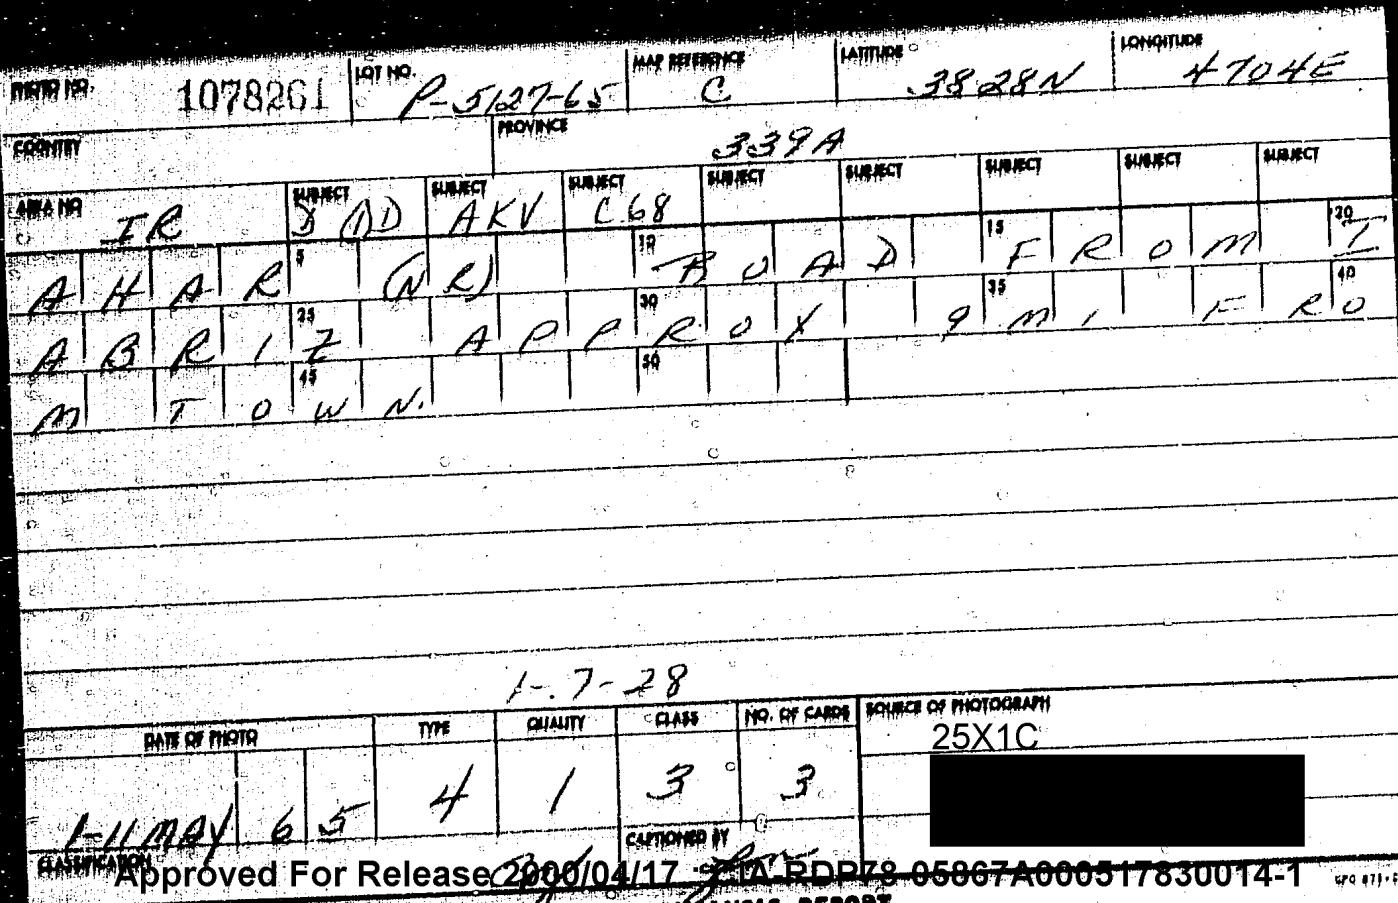 PHOTO NO. 1078261 LOT NO. P-5127-65 MAP REFERENCE C LATITUDE 3828N LONGITUDE 4704E
COUNTRY PROVINCE 339A
AREA NO IR SUBJECT SUBJECT AKV SUBJECT C68 SUBJECT SUBJECT SUBJECT SUBJECT SUBJECT
AHAR 5 (NR) 10 ROAD 15 FROM 20 T
ABRIZ 25 APPROX 30 9 MI. 35 FRO 40
M TOWN. 45 50
1-.7-28
DATE OF PHOTO TYPE QUALITY CLASS NO. OF CARDS SOURCE OF PHOTOGRAPH
25X1C
1-11 MAY 65 4 1 3 3
CLASSIFICATION CAPTIONED BY
Approved For Release 2000/04/17 : CIA-RDP78-05867A000517830014-1
REPORT